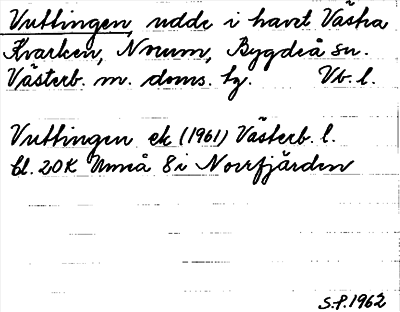 Vuttingen, udde i havet Västra
Kvarken, Norum, Bygdeå sn.
Västerb. m. doms. tg. Vb. l.
Vuttingen ek (1961) Västerb. l.
bl. 20K Umeå 8 i Norrfjärden
S.P. 1962